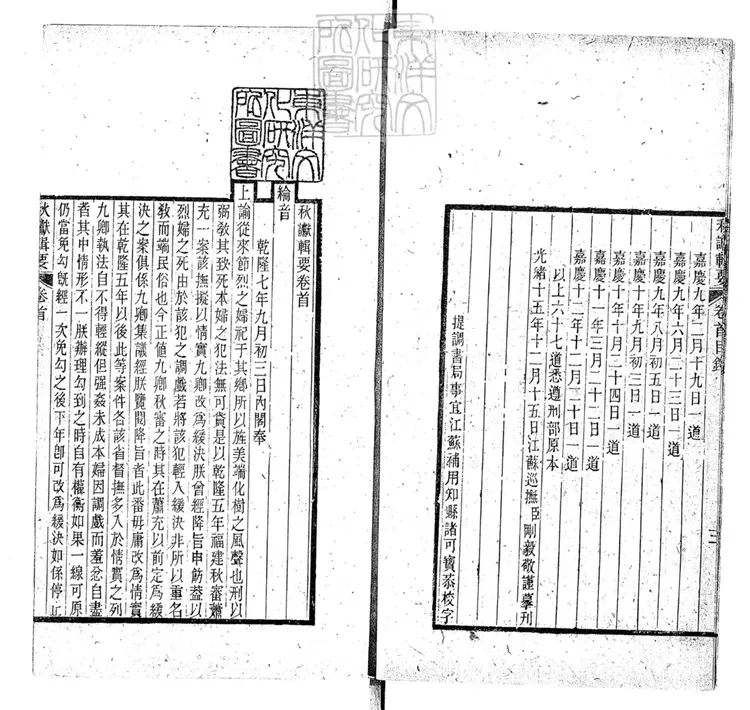 秋讞輯要 卷首目錄 三
嘉慶九年二月十九日一道
嘉慶九年六月二十三日一道
嘉慶九年八月初五日一道
嘉慶十年九月初三日一道
嘉慶十年十月二十四日一道
嘉慶十一年三月二十二日一道
嘉慶十二年十二月二十日一道
以上六十七道悉遵刑部原本
光緒十五年十二月十五日江蘇巡撫臣剛毅敬謹摹刊
提調書局事宜江蘇補用知縣諸可寶恭校字
東洋文
化研究
所圖書
東洋文
化研究
所圖書
秋讞輯要卷首
綸音
乾隆七年九月初三日內閣奉
上諭從來節烈之婦祀于其鄉所以旌美端化樹之風聲也刑以
弼教其致死本婦之犯法無可貸是以乾隆五年福建秋審蕭
充一案該撫擬以情實九卿改為緩決朕曾經降旨申飭蓋以
烈婦之死由於該犯之調戲若將該犯輕入緩決非所以重名
教而端民俗也今正值九卿秋審之時其在蕭充以前定為緩
決之案俱係九卿集議經朕覽閱降旨者此番毋庸改為情實
其在乾隆五年以後此等案件各該省督撫多入於情實之列
九卿執法自不得輕縱但強姦未成本婦因調戲而羞忿自盡
者其中情形不一朕辦理勾到之時自有權衡如果一線可原
仍當免勾旣經一次免勾之後下年卽可改為緩決如係停止
秋讞輯要 卷首